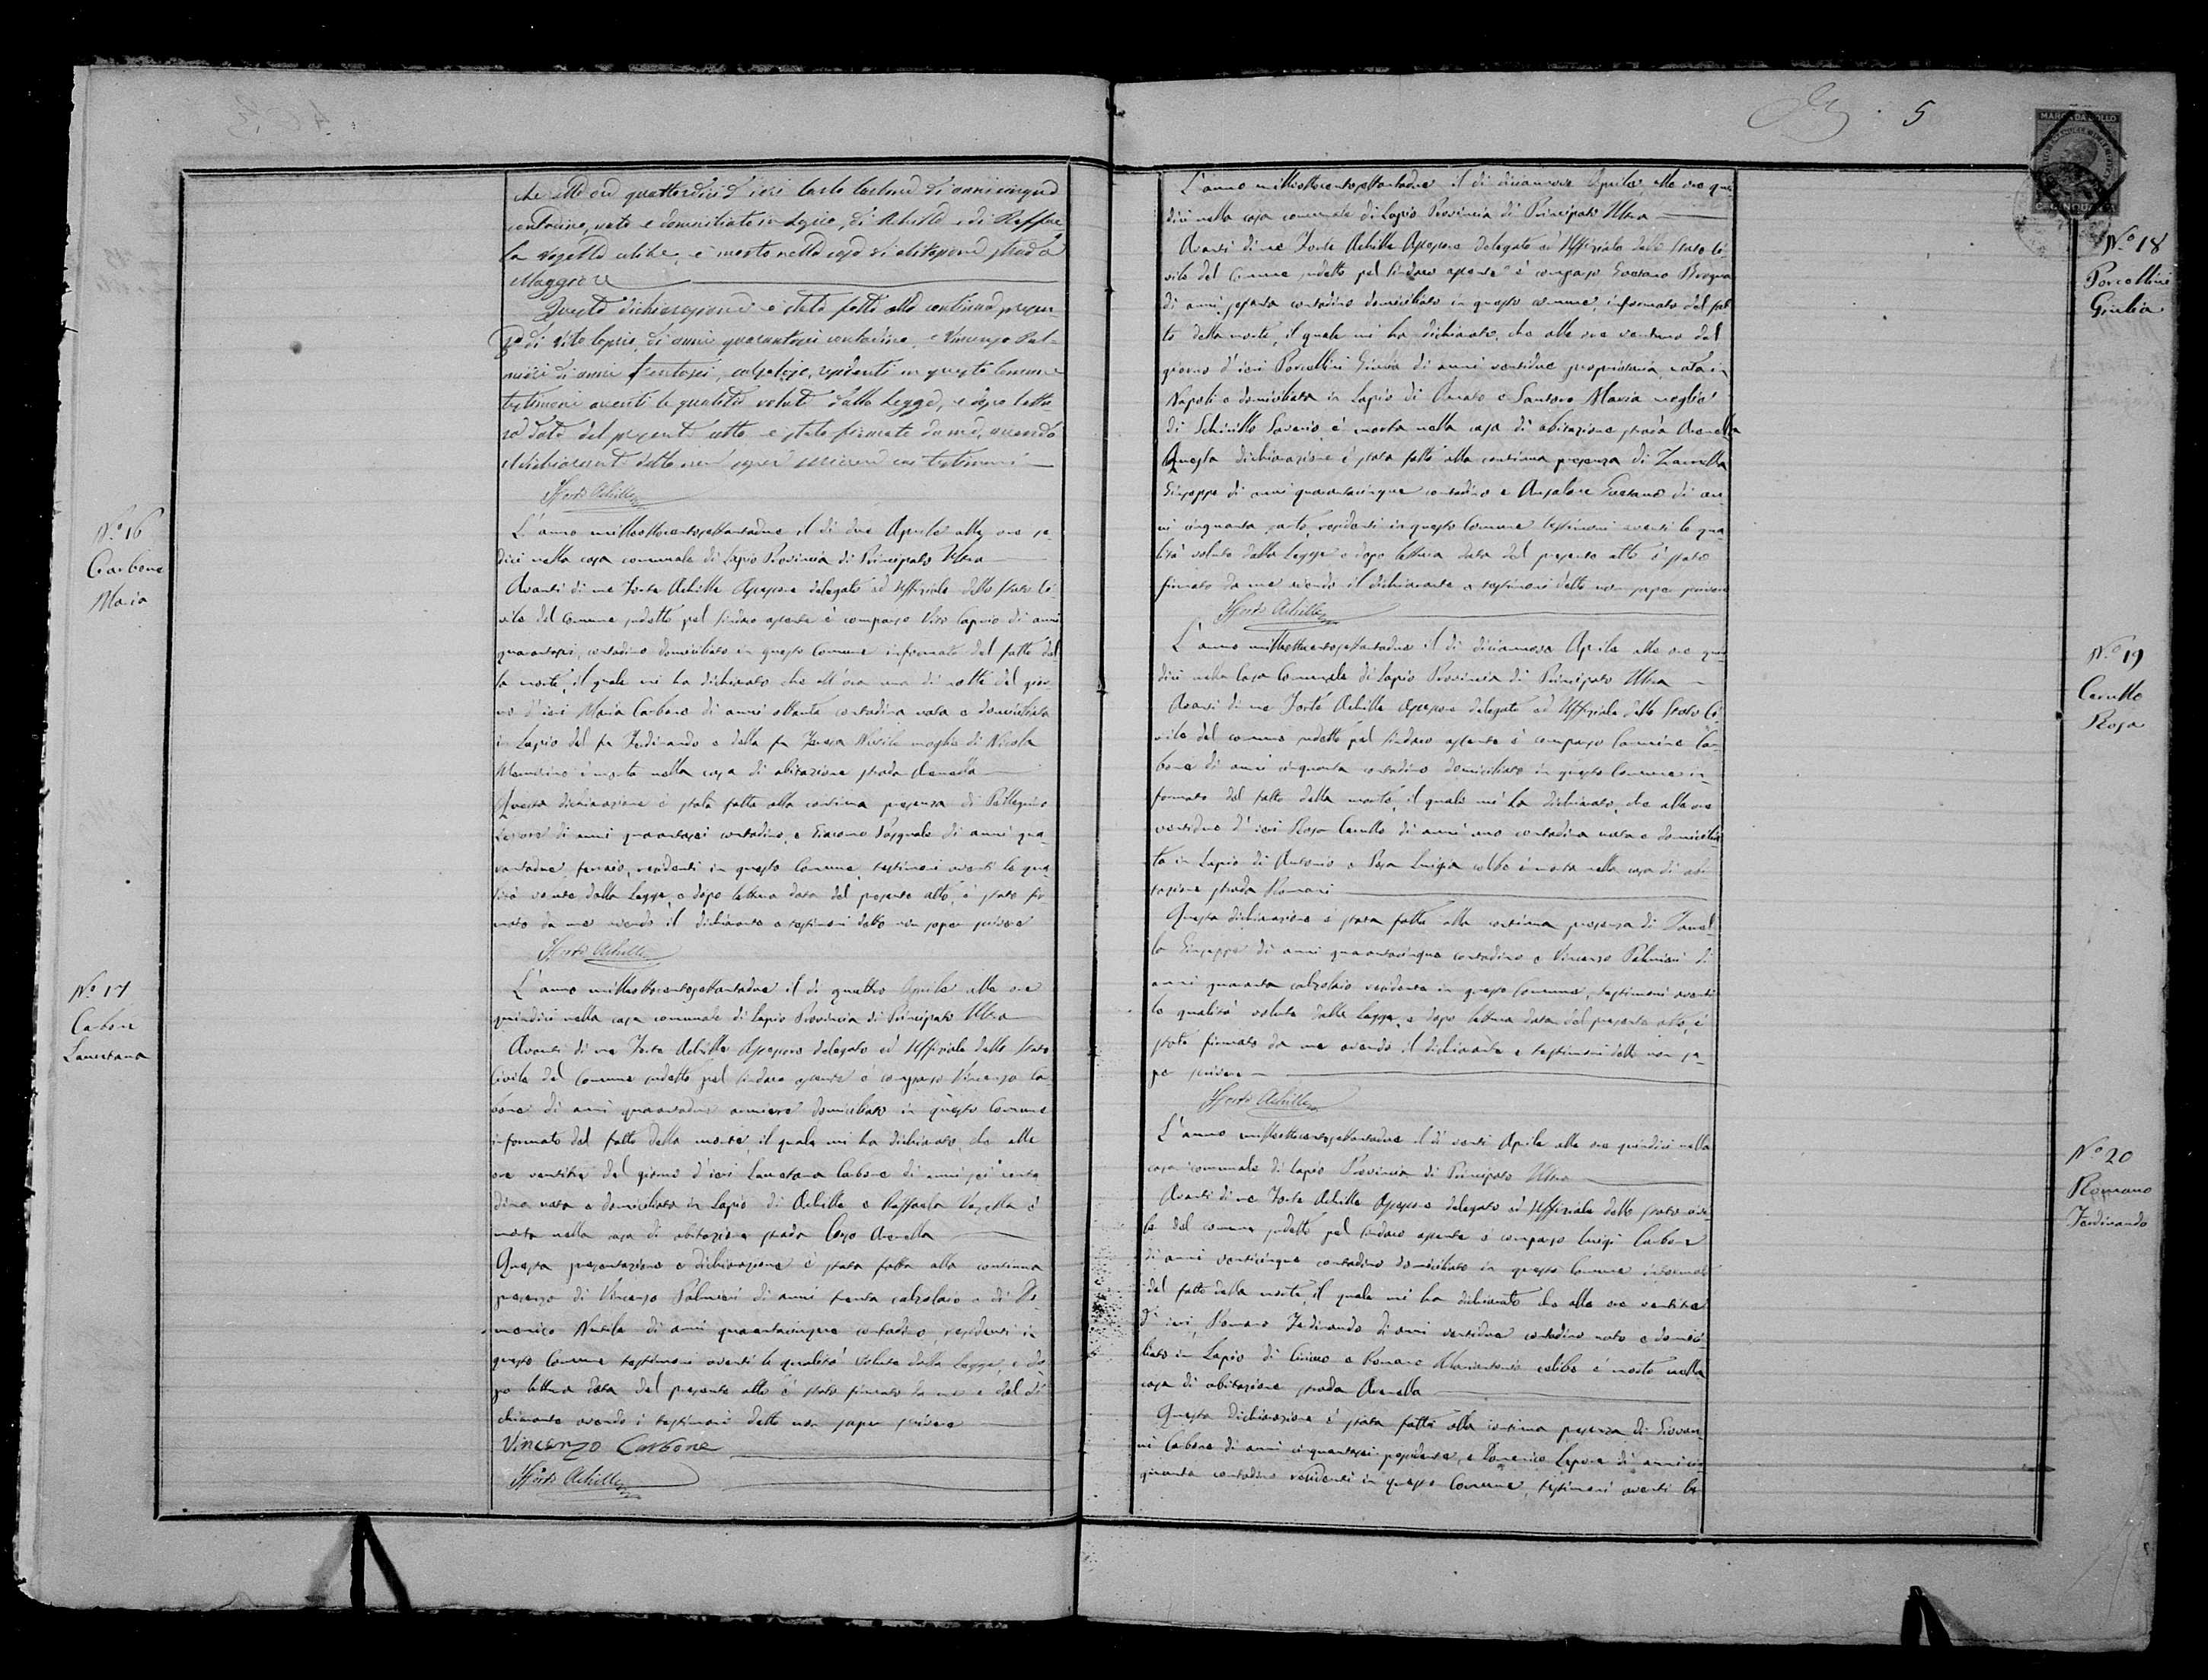 5
MARCA DA BOLLO
che alle ore quattordici d'ieri Carlo Carbone di anni cinque
contadino, nato e domiciliato in Lapio, di Achille e di Raffae
la Vozella celibe, è morto nella casa di abitazione strada
Maggiore
Questa dichiarazione è stata fatta alla continua presen-
za di Vito Caprio, di anni quarantasei contadino, e Vincenzo Pal-
mieri di anni trentasei, calzolajo, residenti in questo Comune
testimoni aventi le qualità volute dalla Legge, e dopo lettu
ra data del presente atto è stato firmato da me, avendo
il dichiarante detto non saper scrivere coi testimoni
Forte Achille
No. 16
Carbone
Maria
L'anno milleottocentosettantadue il dì due Aprile alle ore se-
dici nella casa comunale di Lapio Provincia di Principato Ultra
Avanti di me Forte Achille Assessore delegato ed Uffiziale dello Stato Ci-
vile del Comune sudetto pel Sindaco assente è comparso Vito Caprio di anni
quarantasei, contadino domiciliato in questo Comune informato del fatto del
la morte, il quale mi ha dichiarato che all'ora una di notte del gior
no d'ieri Maria Carbone di anni ottanta contadina nata e domiciliata
in Lapio del fu Ferdinando e della fu Teresa moglie di Nicola
è morta nella casa di abitazione strada Arenella
Questa dichiarazione è stata fatta alla continua presenza di Pellegrino
di anni quarantasei contadino, e Giacomo Pasquale di anni qua-
rantadue ferraio, residenti in questo Comune, testimoni aventi le qua-
lità volute dalla Legge, e dopo lettura data del presente atto, è stato fir
mato da me avendo il dichiarante e testimoni detto non saper scrivere
Forte Achille
No. 17
Carbone
Lauretana
L'anno milleottocentosettantadue il dì quattro Aprile alle ore
quindici nella casa comunale di Lapio Provincia di Principato Ultra
Avanti di me Forte Achille Assessore delegato ed Uffiziale dello Stato
Civile del Comune sudetto pel Sindaco assente è comparso Vincenzo Ca-
bone di anni quarantadue domiciliato in questo Comune
informato del fatto della morte, il quale mi ha dichiarato, che alle
ore ventitre del giorno d'ieri Lauretana Carbone di anni sei conta
dina nata e domiciliata in Lapio di Achille e Raffaela Vozella è
morta nella casa di abitazione strada Corso Arenella
Questa presentazione e dichiarazione è stata fatta alla continua
presenza di Vincenzo Palmieri di anni trenta calzolaio e di Do-
menico di anni quarantacinque contadino, residenti in
questo Comune testimoni aventi le qualità volute dalla Legge, e do
po lettura data del presente atto è stato firmato da me e dal di
chiarante avendo i testimoni detto non saper scrivere
Vincenzo Carbone
Forte Achille
No. 18
Porcellini
Giulia
L'anno milleottocentosettantadue il dì diciannove Aprile, alle ore quin
dici nella casa comunale di Lapio Provincia di Principato Ultra
Avanti di me Forte Achille Assessore delegato ed Uffiziale dello Stato Ci-
vile del Comune sudetto pel Sindaco assente è comparso Gaetano
di anni sessanta contadino domiciliato in questo comune, informato del fat
to della morte, il quale mi ha dichiarato, che alle ore ventuno del
giorno d'ieri Porcellini Giulia di anni ventidue proprietaria, nata in
Napoli e domiciliata in Lapio di e Santoro Maria moglie
di Schirillo Saverio, è morta nella casa di abitazione strada Arenella
Questa dichiarazione è stata fatta alla continua presenza di Zarrella
Giuseppe di anni quarantacinque contadino e Gaetano di an
ni cinquanta sarto, residenti in questo Comune testimoni aventi le qua
lità volute dalla Legge e dopo lettura data del presente atto è stato
firmato da me avendo il dichiarante e testimoni detto non saper scrivere
Forte Achille
No. 19
Carullo
Rosa
L'anno milleottocentosettantadue il dì diciannove Aprile alle ore quin
dici nella Casa Comunale di Lapio Provincia di Principato Ultra
Avanti di me Forte Achille Assessore delegato ed Uffiziale dello Stato Ci-
vile del comune sudetto pel Sindaco assente è comparso Carmine Car
bone di anni cinquanta contadino domiciliato in questo Comune in-
formato del fatto della morte, il quale mi ha dichiarato, che alle ore
ventidue d'ieri Rosa Carullo di anni uno contadina nata e domicilia
ta in Lapio di Antonio e Luigia celibe è morta nella casa di abi
tazione strada Romani
Questa dichiarazione è stata fatta alla continua presenza di Zarrel
la Giuseppe di anni quarantacinque contadino e Vincenzo Palmieri di
anni quaranta calzolaio residenti in questo Comune, testimoni aventi
le qualità volute dalla Legge, e dopo lettura data del presente atto, è
stato firmato da me avendo il dichiarante e testimoni detto non sa-
per scrivere
Forte Achille
No. 20
Romano
Ferdinando
L'anno milleottocentosettantadue il dì venti Aprile alle ore quindici nella
casa comunale di Lapio Provincia di Principato Ultra
Avanti di me Forte Achille Assessore delegato ed Uffiziale dello Stato civi-
le del comune sudetto pel Sindaco assente è comparso Luigi Carbone
di anni venticinque contadino domiciliato in questo Comune informato
del fatto della morte, il quale mi ha dichiarato che alle ore ventitre
d'ieri, Romano Ferdinando di anni ventidue contadino nato e domici-
liato in Lapio di e Romano Mariantonia celibe è morto nella
casa di abitazione strada Arenella
Questa dichiarazione è stata fatta alla continua presenza di Giovan-
ni Carbone di anni cinquantasei possidente, e Domenico Lepore di anni cin
quanta contadino residenti in questo Comune, testimoni aventi le